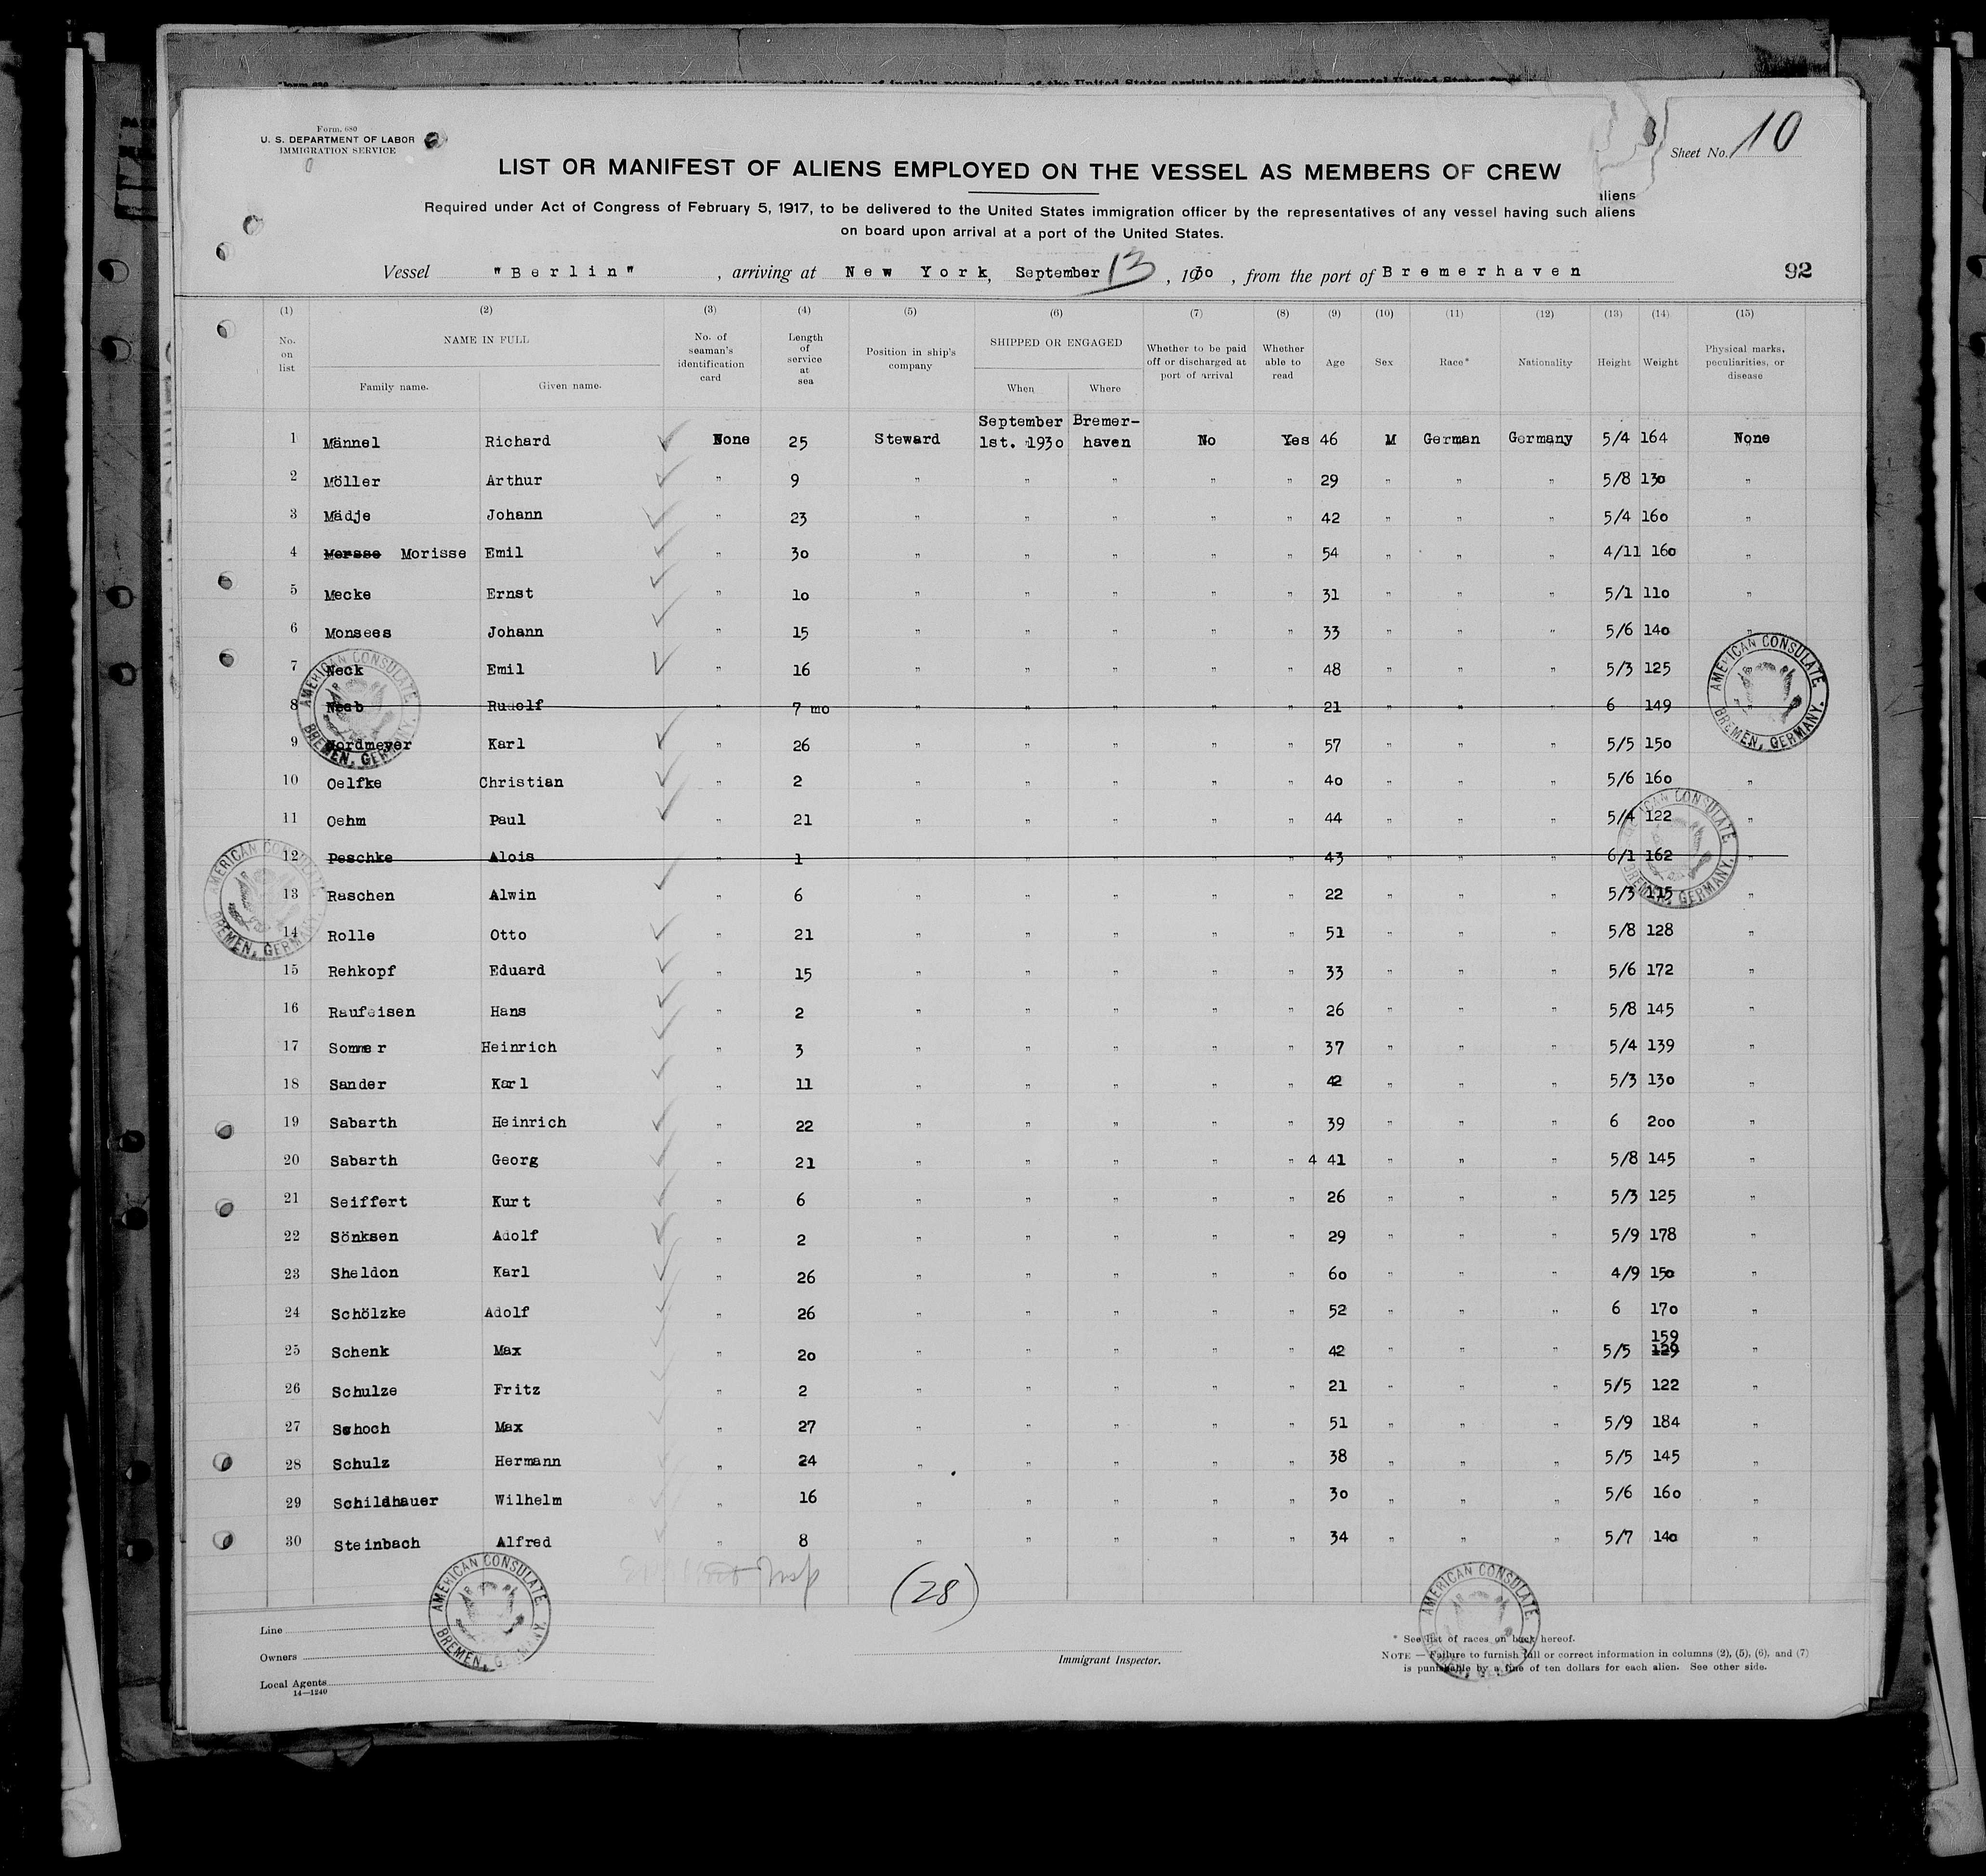 Form. 680
U. S. DEPARTMENT OF LABOR
IMMIGRATION SERVICE
Sheet No. 10
LIST OR MANIFEST OF ALIENS EMPLOYED ON THE VESSEL AS MEMBERS OF CREW
aliens
Required under Act of Congress of February 5, 1917, to be delivered to the United States immigration officer by the representatives of any vessel having such aliens
on board upon arrival at a port of the United States.
Vessel "Berlin" , arriving at New York, September 13 , 1930 , from the port of Bremerhaven 92
(1) (2) (3) (4) (5) (6) (7) (8) (9) (10) (11) (12) (13) (14) (15)
No. on list NAME IN FULL Family name. Given name. No. of seaman's identification card Length of service at sea Position in ship's company SHIPPED OR ENGAGED When Where Whether to be paid off or discharged at port of arrival Whether able to read Age Sex Race* Nationality Height Weight Physical marks, peculiarities, or disease
1 Männel Richard None 25 Steward September 1st. 1930 Bremer-haven No Yes 46 M German Germany 5/4 164 None
2 Möller Arthur " 9 " " " " " 29 " " " 5/8 130 "
3 Mädje Johann " 23 " " " " " 42 " " " 5/4 160 "
4 Morisse Emil " 30 " " " " " 54 " " " 4/11 160 "
5 Mecke Ernst " 10 " " " " " 31 " " " 5/1 110 "
6 Monsees Johann " 15 " " " " " 33 " " " 5/6 140 "
7 Neck Emil " 16 " " " " " 48 " " " 5/3 125
8 Neeb Rudolf " 7 mo " " " " " 21 " " " 6 149
9 Nordmeyer Karl " 26 " " " " " 57 " " " 5/5 150
10 Oelfke Christian " 2 " " " " " 40 " " " 5/6 160 "
11 Oehm Paul " 21 " " " " " 44 " " " 5/4 122 "
12 Peschke Alois " 1 " " " " " 43 " " " 6/1 162 "
13 Raschen Alwin " 6 " " " " " 22 " " " 5/3 115 "
14 Rolle Otto " 21 " " " " " 51 " " " 5/8 128 "
15 Rehkopf Eduard " 15 " " " " " 33 " " " 5/6 172 "
16 Raufeisen Hans " 2 " " " " " 26 " " " 5/8 145 "
17 Sommer Heinrich " 3 " " " " " 37 " " " 5/4 139 "
18 Sander Karl " 11 " " " " " 42 " " " 5/3 130 "
19 Sabarth Heinrich " 22 " " " " " 39 " " " 6 200 "
20 Sabarth Georg " 21 " " " " " 4 41 " " " 5/8 145 "
21 Seiffert Kurt " 6 " " " " " 26 " " " 5/3 125 "
22 Sönksen Adolf " 2 " " " " " 29 " " " 5/9 178 "
23 Sheldon Karl " 26 " " " " " 60 " " " 4/9 150 "
24 Schölzke Adolf " 26 " " " " " 52 " " " 6 170 "
25 Schenk Max " 20 " " " " " 42 " " " 5/5 159 129 "
26 Schulze Fritz " 2 " " " " " 21 " " " 5/5 122 "
27 Schoch Max " 27 " " " " " 51 " " " 5/9 184 "
28 Schulz Hermann " 24 " " " " " 38 " " " 5/5 145 "
29 Schildhauer Wilhelm " 16 " " " " " 30 " " " 5/6 160 "
30 Steinbach Alfred " 8 " " " " " 34 " " " 5/7 140 "
(28)
AMERICAN CONSULATE BREMEN, GERMANY.
AMERICAN CONSULATE. BREMEN, GERMANY.
AMERICAN CONSULATE. BREMEN, GERMANY.
AMERICAN CONSULATE BREMEN, GERMANY.
AMERICAN CONSULATE. BREMEN, GERMANY.
AMERICAN CONSULATE. BREMEN, GERMANY.
Line
Owners
Local Agents
14—1240
Immigrant Inspector.
* See list of races on back hereof.
NOTE — Failure to furnish full or correct information in columns (2), (5), (6), and (7)
is punishable by a fine of ten dollars for each alien. See other side.